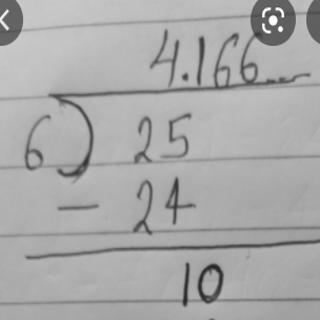 4.166...
6) 25
- 24
10